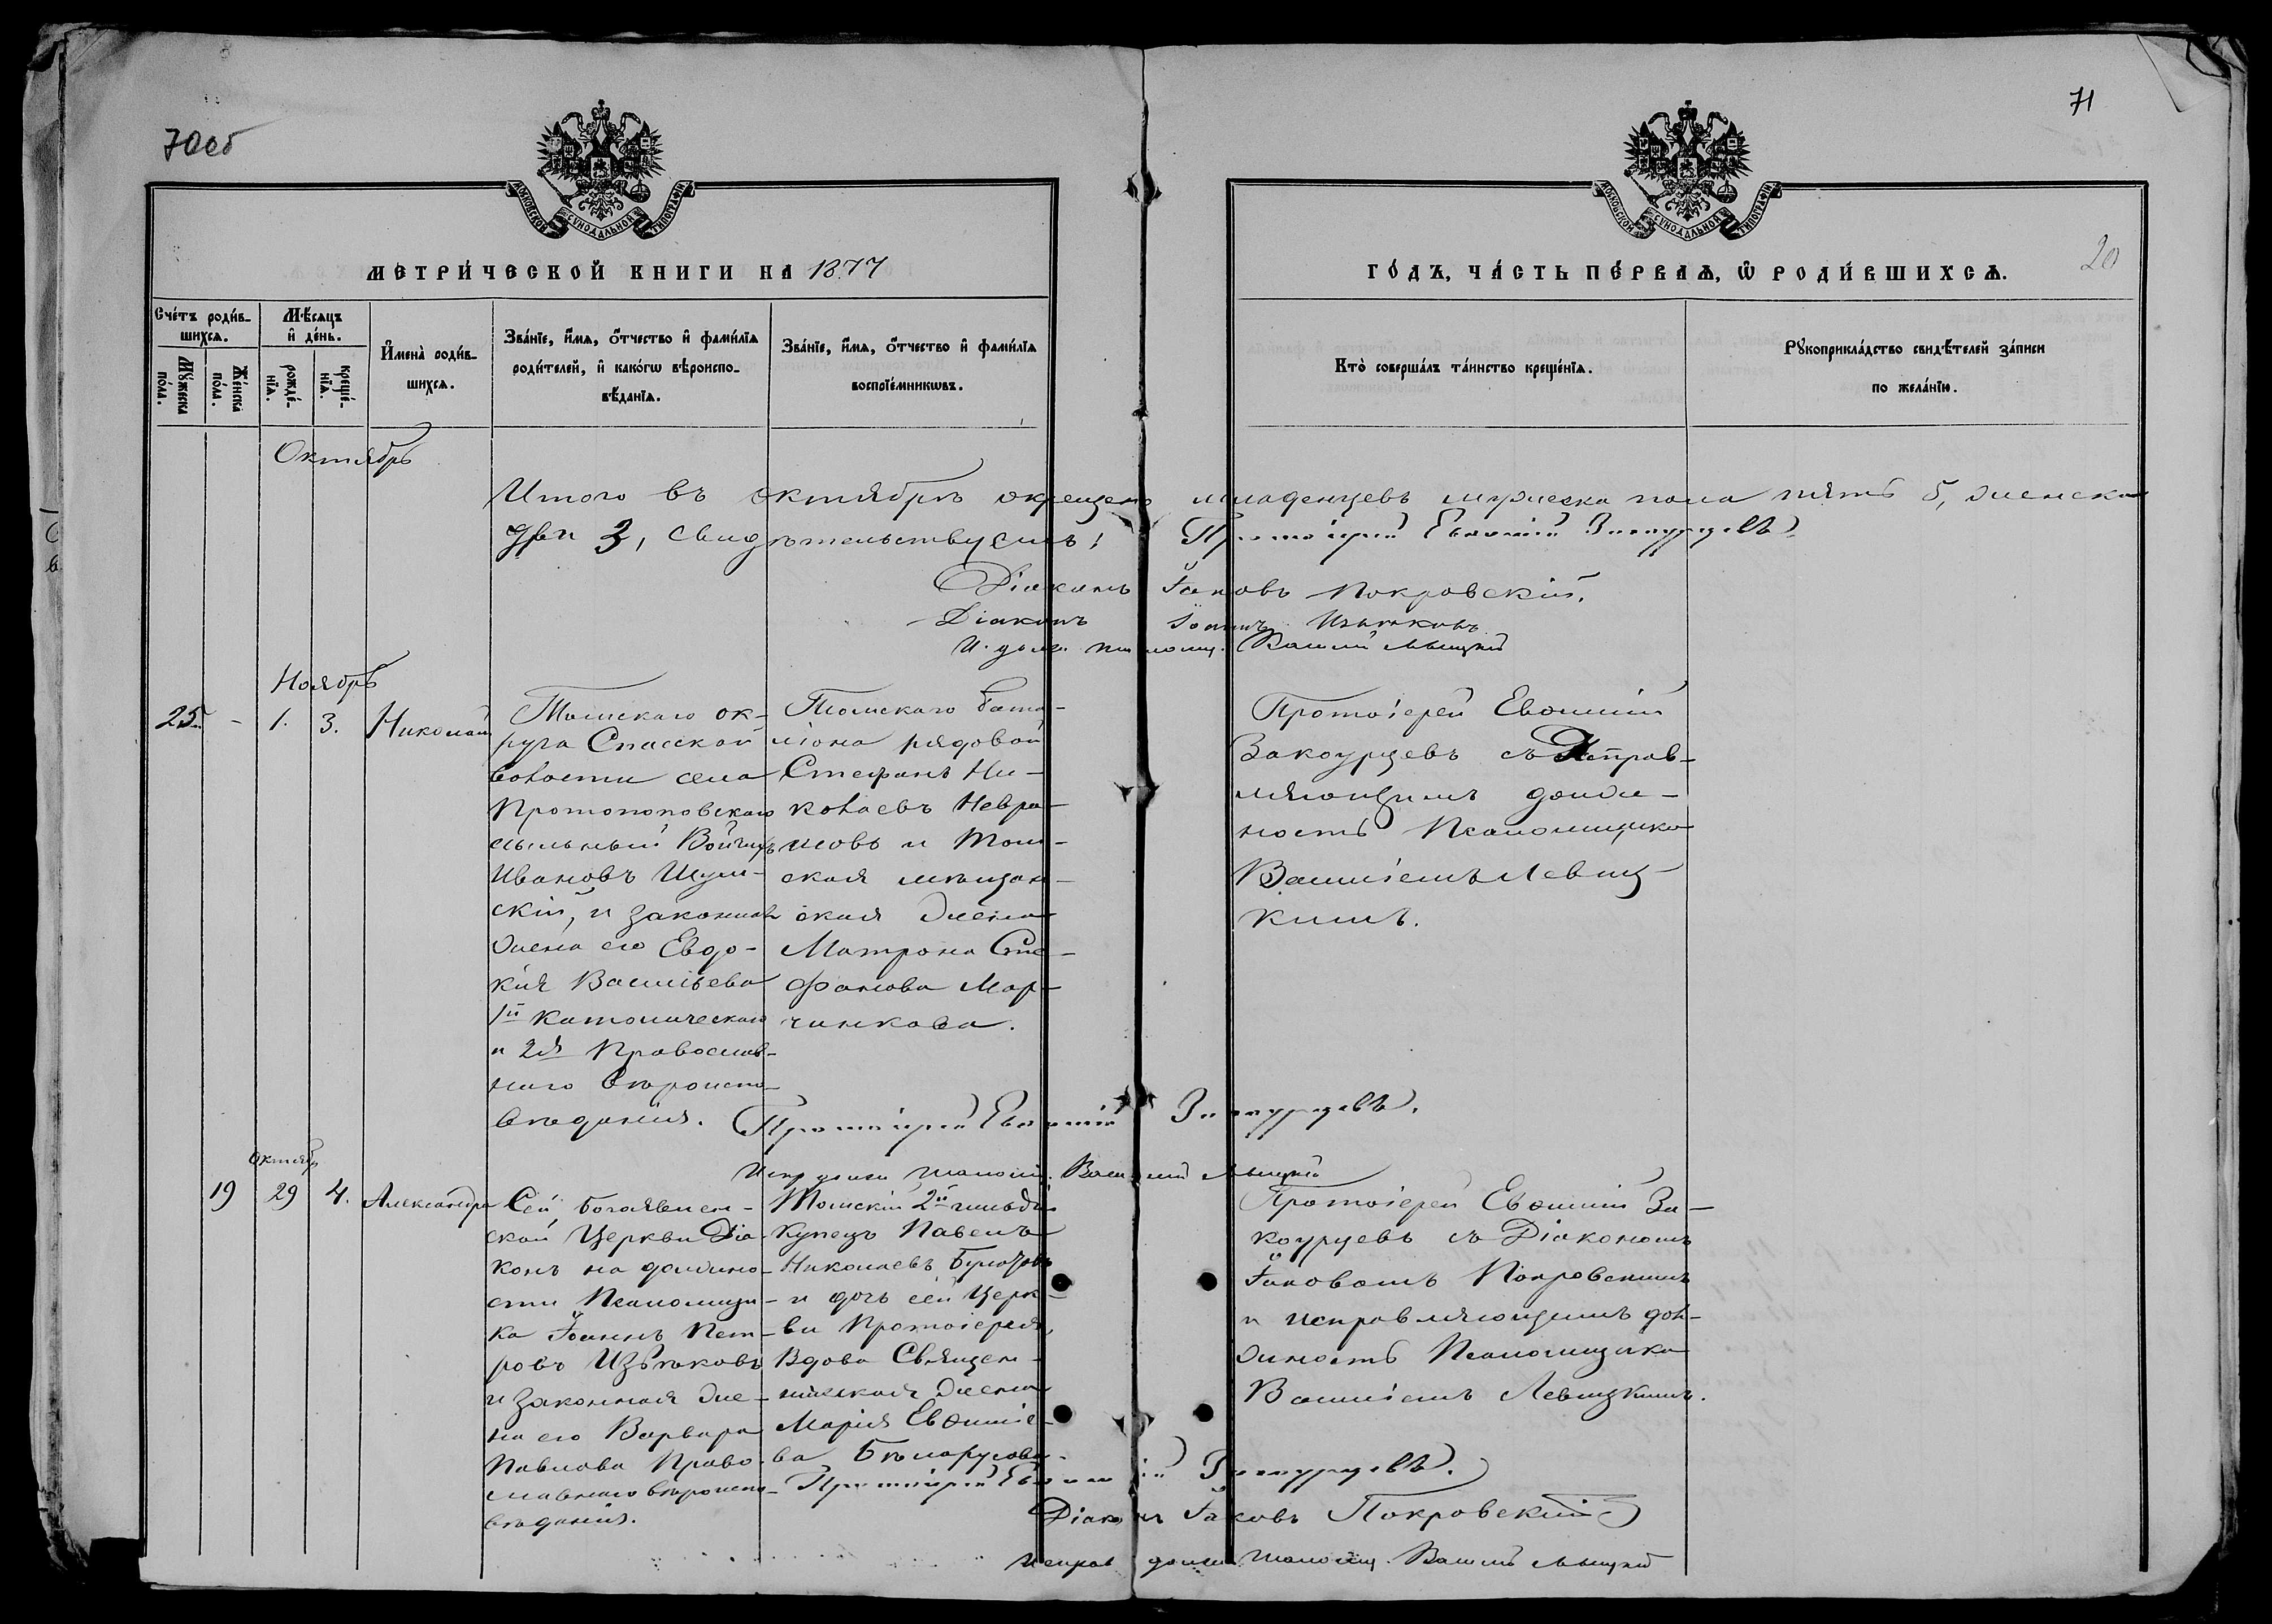 70об
71
20
МОСКОВСКОЙ СѴНОДАЛЬНОЙ ТИПОГРАФІИ
МОСКОВСКОЙ СѴНОДАЛЬНОЙ ТИПОГРАФІИ
МЕТРИ́ЧЕСКОЙ КНИГИ НА 1877
ГО́ДЪ, ЧА́СТЬ ПЕ́РВАѦ, Ѡ РОДИ́ВШИХСѦ.
Сче́тъ роди́в-
шихсѧ.
Мꙋ́жеска
по́ла.
Же́нска
по́ла.
Мѣ́сѧцъ
и҆ де́нь.
рожде́-
нїѧ.
креще́-
нїѧ.
И҆мена̀ роди́в-
шихсѧ.
Зва́нїе, и҆́мѧ, ѻ҆́тчество и҆ фами́лїѧ
роди́телей, и҆ како́гѡ вѣроиспо-
вѣ́данїѧ.
Зва́нїе, и҆́мѧ, ѻ҆́тчество и҆ фами́лїѧ
воспрїе́мникѡвъ.
Кто̀ соверша́лъ та́инство креще́нїѧ.
Рꙋкоприкла́дство свидѣ́телей за́писи
по жела́нїю.
Октябрь
Итого въ октябрѣ окрещено младенцевъ мужеска пола пять 5, женска
три 3, свидѣтельствуемъ: Протоіерей Евѳимій Закоурцевъ
Діаконъ Іаковъ Покровскій.
Діаконъ Іоаннъ Изъмковъ
И. долж. псаломщ. Василій Левицкій
Ноябрь
25. - 1. 3. Николай
Томскаго ок-
руга Спасской
волости села
Протопоповскаго
ссыльный Войцехъ
Ивановъ Шум-
скій, и законная
жена его Евдо-
кія Васильева
1й католическаго
и 2я Православ-
наго вѣроиспо-
вѣданія.
Томскаго бата-
ліона рядовой
Стефанъ Ни-
колаевъ Невра-
мовъ и Том-
ская мѣщан-
ская жена
Матрона Сте-
фанова Мар-
чинкова.
Протоіерей Евѳимій
Закоурцевъ съ Исправ-
ляющимъ долж-
ность Псаломщика
Василіемъ Левиц-
кимъ.
Протоіерей Евѳимій Закоурцевъ.
Испр. долж. псаломщ. Василій Левицкій
Октябр
19 29 4. Александра
Сей Богоявлен-
ской Церкви Діа-
конъ на должно-
сти Псаломщи-
ка Іоаннъ Пет-
ровъ Изъмковъ
и законная же-
на его Варвара
Павлова Право-
славнаго вѣроиспо-
вѣданія.
Томскій 2й гильдіи
Купецъ Павелъ
Николаевъ
и дочь сей Церк-
ви Протоіерея,
Вдова Священ-
ническая жена
Марія Евѳиміе-
ва Бѣлорусова.
Протоіерей Евѳимій За-
коурцевъ съ Діакономъ
Іаковомъ Покровскимъ
и исправляющимъ дол-
жность Псаломщика
Василіемъ Левицкимъ.
Протоіерей Евѳимій Закоурцевъ.
Діаконъ Іаковъ Покровскій
Исправ. долж. псаломщ. Василій Левицкій